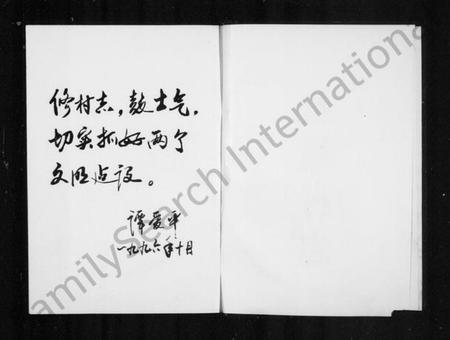 修村志，鼓士气，
切实抓好两个
文明建设。
谭爱平
一九九六年十月
FamilySearch International